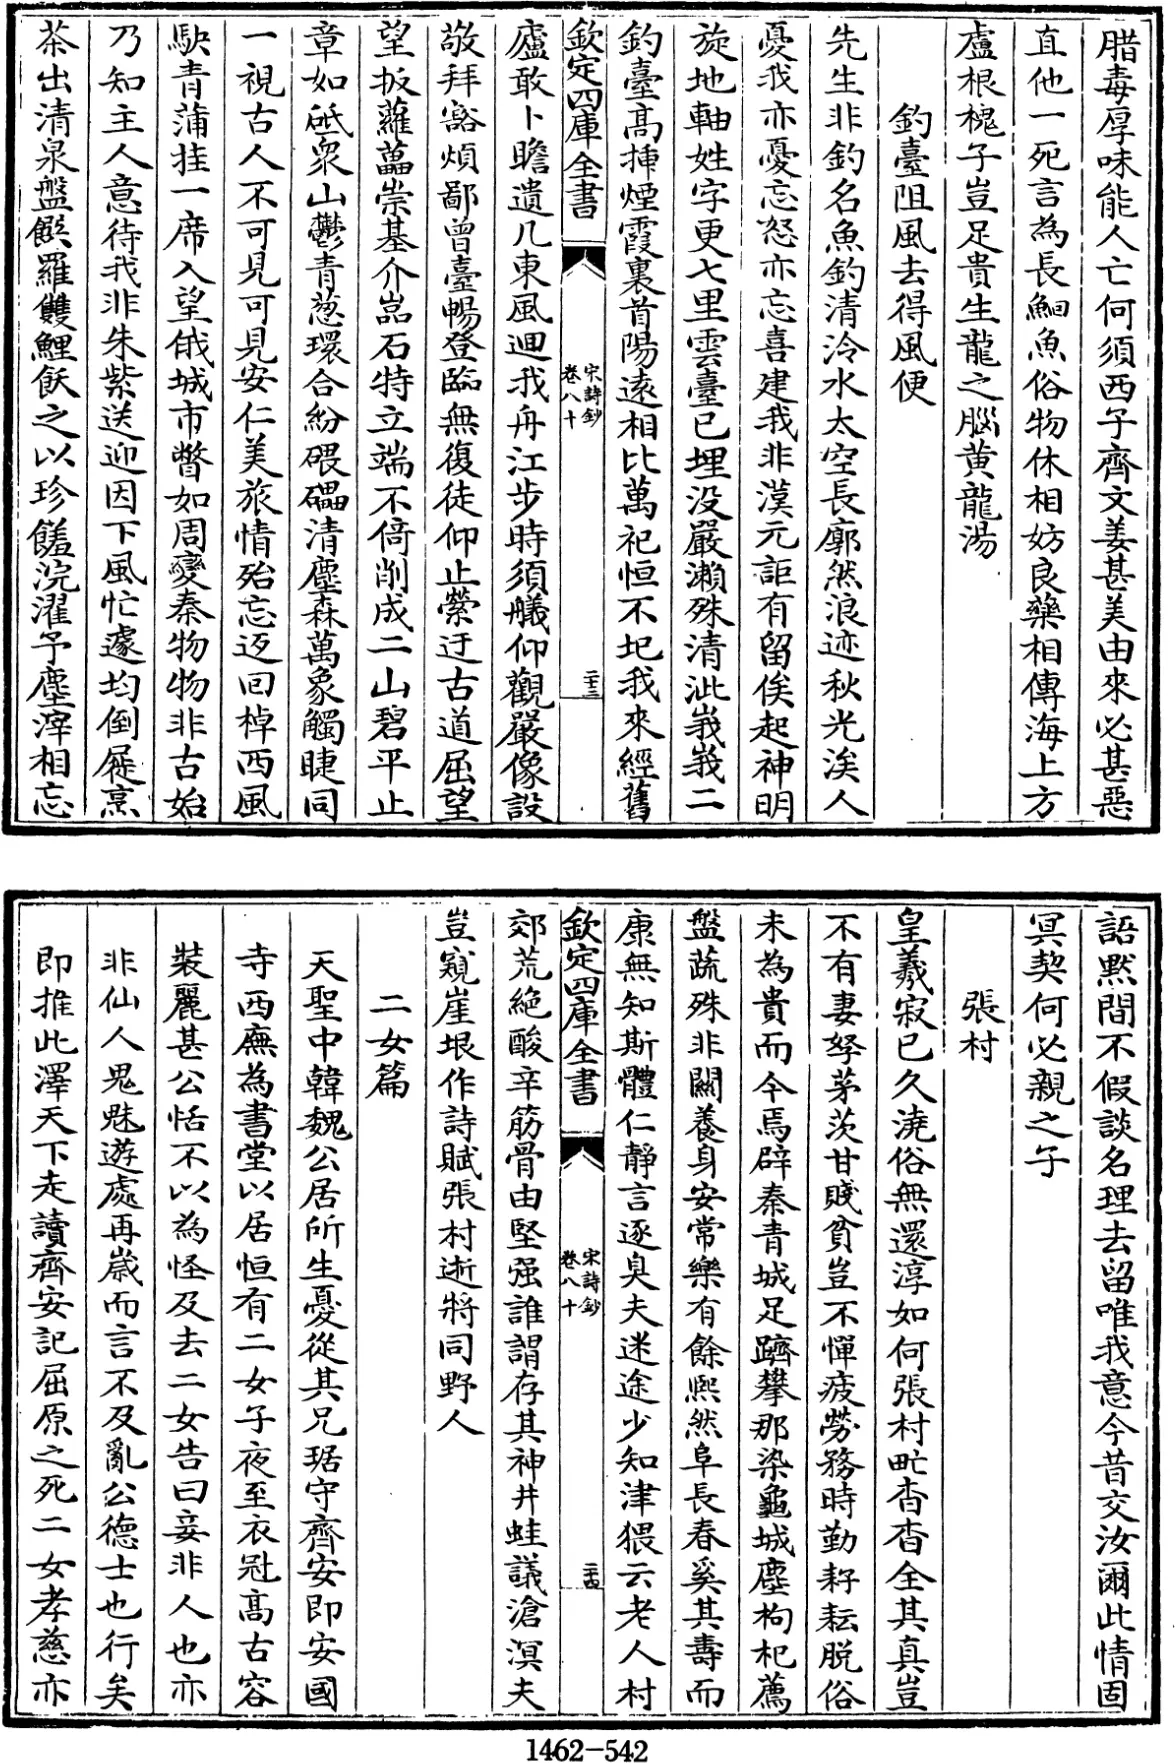 腊毒厚味能人亡何須西子齊文姜甚美由來必甚惡
直他一死言為長鮰魚俗物休相妨良藥相傳海上方
盧根槐子豈足貴生龍之腦黃龍湯
釣臺阻風去得風便
先生非釣名魚釣清泠水太空長廓然浪迹秋光涘人
憂我亦憂忘怒亦忘喜建我非漢元詎有留侯起神明
旋地軸姓字更七里雲臺已埋没嚴瀨殊清泚峩峩二
釣臺高揷煙霞裏首陽遠相比萬祀恒不圮我來經舊
欽定四庫全書
宋詩鈔
卷八十
二十三
廬敢卜瞻遺几東風迴我舟江步時須艤仰觀嚴像設
敬拜豁煩鄙曾臺暢登臨無復徒仰止縈迂古道屈望
望扳蘿藟崇基介嵓石特立端不倚削成二山碧平止
章如砥衆山鬱青葱環合紛碨礧清塵森萬象觸睫同
一視古人不可見可見安仁美旅情殆忘返囘棹西風
駃青蒲挂一席入望俄城市瞥如周變秦物物非古始
乃知主人意待我非朱紫送迎因下風忙遽均倒屣烹
茶出清泉盤餱羅雙鯉飫之以珍饈浣濯予塵滓相忘
語默間不假談名理去留唯我意今昔交汝爾此情固
冥契何必親之子
張村
皇羲寂已久澆俗無還淳如何張村甿杳杳全其真豈
不有妻孥茅茨甘賤貧豈不憚疲勞務時勤耔耘脱俗
未為貴而今焉辟秦青城足躋攀那染龜城塵枸杞薦
盤蔬殊非闗養身安常樂有餘熙然阜長春奚其壽而
康無知斯體仁靜言逐臭夫迷途少知津猥云老人村
欽定四庫全書
宋詩鈔
卷八十
二十四
郊荒絶酸辛筋骨由堅强誰謂存其神井蛙議滄溟夫
豈窺崖垠作詩賦張村逝將同野人
二女篇
天聖中韓魏公居所生憂從其兄琚守齊安即安國
寺西廡為書堂以居恒有二女子夜至衣冠高古容
裝麗甚公恬不以為怪及去二女告曰妾非人也亦
非仙人鬼魅遊處再嵗而言不及亂公德士也行矣
即推此澤天下走讀齊安記屈原之死二女孝慈亦
1462-542